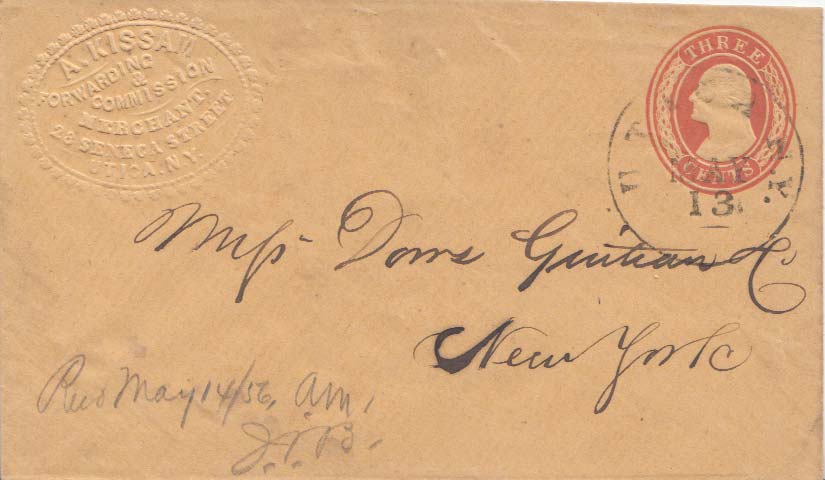 A. KISSAM
FORWARDING
&
COMMISSION
MERCHANT.
28 SENECA STREET
UTICA. N.Y.
THREE
CENTS
UTICA N.Y.
MAR
13
Messrs Dows Guiteau & Co
New York
Recd May 14/56, am,
J.W.B.